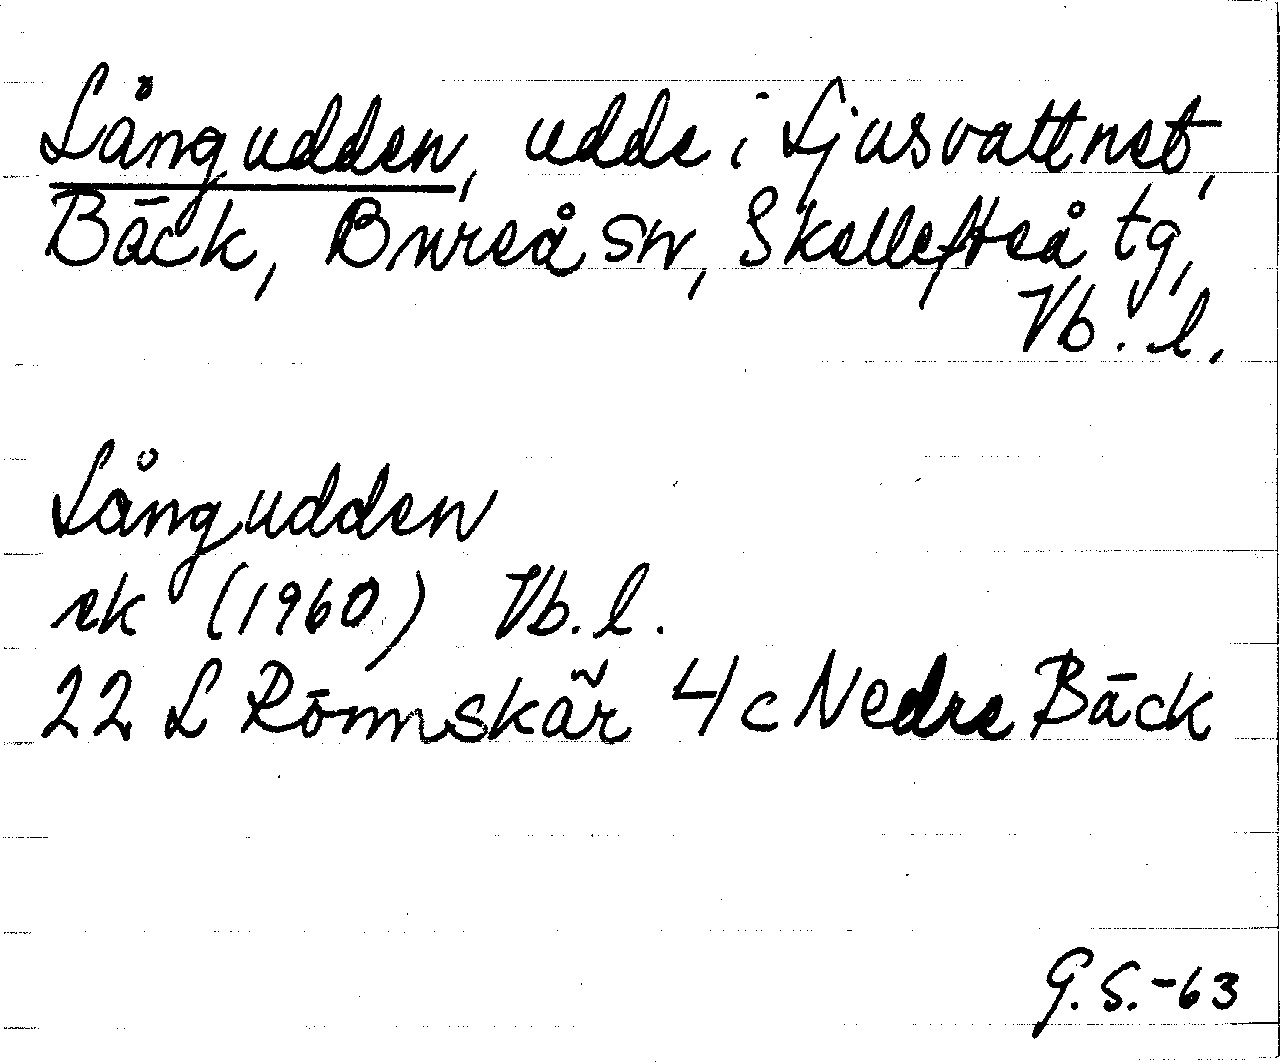 Långudden, udde i Ljusvattnet,
Bäck, Bureå sn, Skellefteå tg,
Vb. l.
Långudden
ek (1960) Vb. l.
22 L Rönnskär 4 c Nedre Bäck
G. S. -63